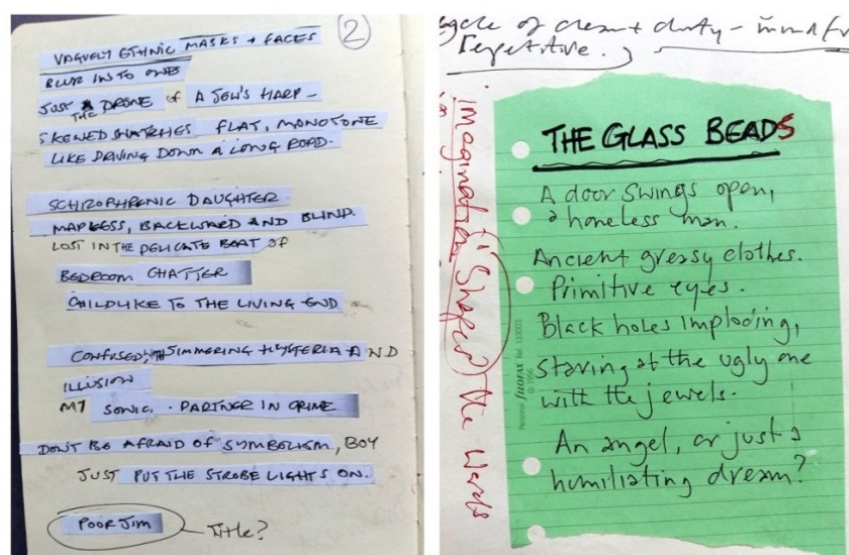 2
VAGUELY ETHNIC MASKS + FACES
BLUR INTO ONE
JUST THE DRONE of A JEW'S HARP -
SKEWED SNATCHES FLAT, MONOTONE
LIKE DRIVING DOWN A LONG ROAD.
SCHIZOPHRENIC DAUGHTER
MAPLESS, BACKWARD AND BLIND.
LOST IN THE DELICATE BEAT OF
BEDROOM CHATTER
CHILDLIKE TO THE LIVING END
CONFUSED, SIMMERING HYSTERIA AND
ILLUSION
MY SONIC. PARTNER IN CRIME
DON'T BE AFRAID OF SYMBOLISM, BOY
JUST PUT THE STROBE LIGHTS ON.
POOR JIM
Title?
cycle of dream + duty -
repetitive.
imagination "Shapes" the words
THE GLASS BEADS
A door swings open,
a homeless man.
Ancient greasy clothes.
Primitive eyes.
Black holes imploding,
staring at the ugly one
with the jewels.
An angel, or just a
humiliating dream?
Personal filofax Ref. 133003
© 1996